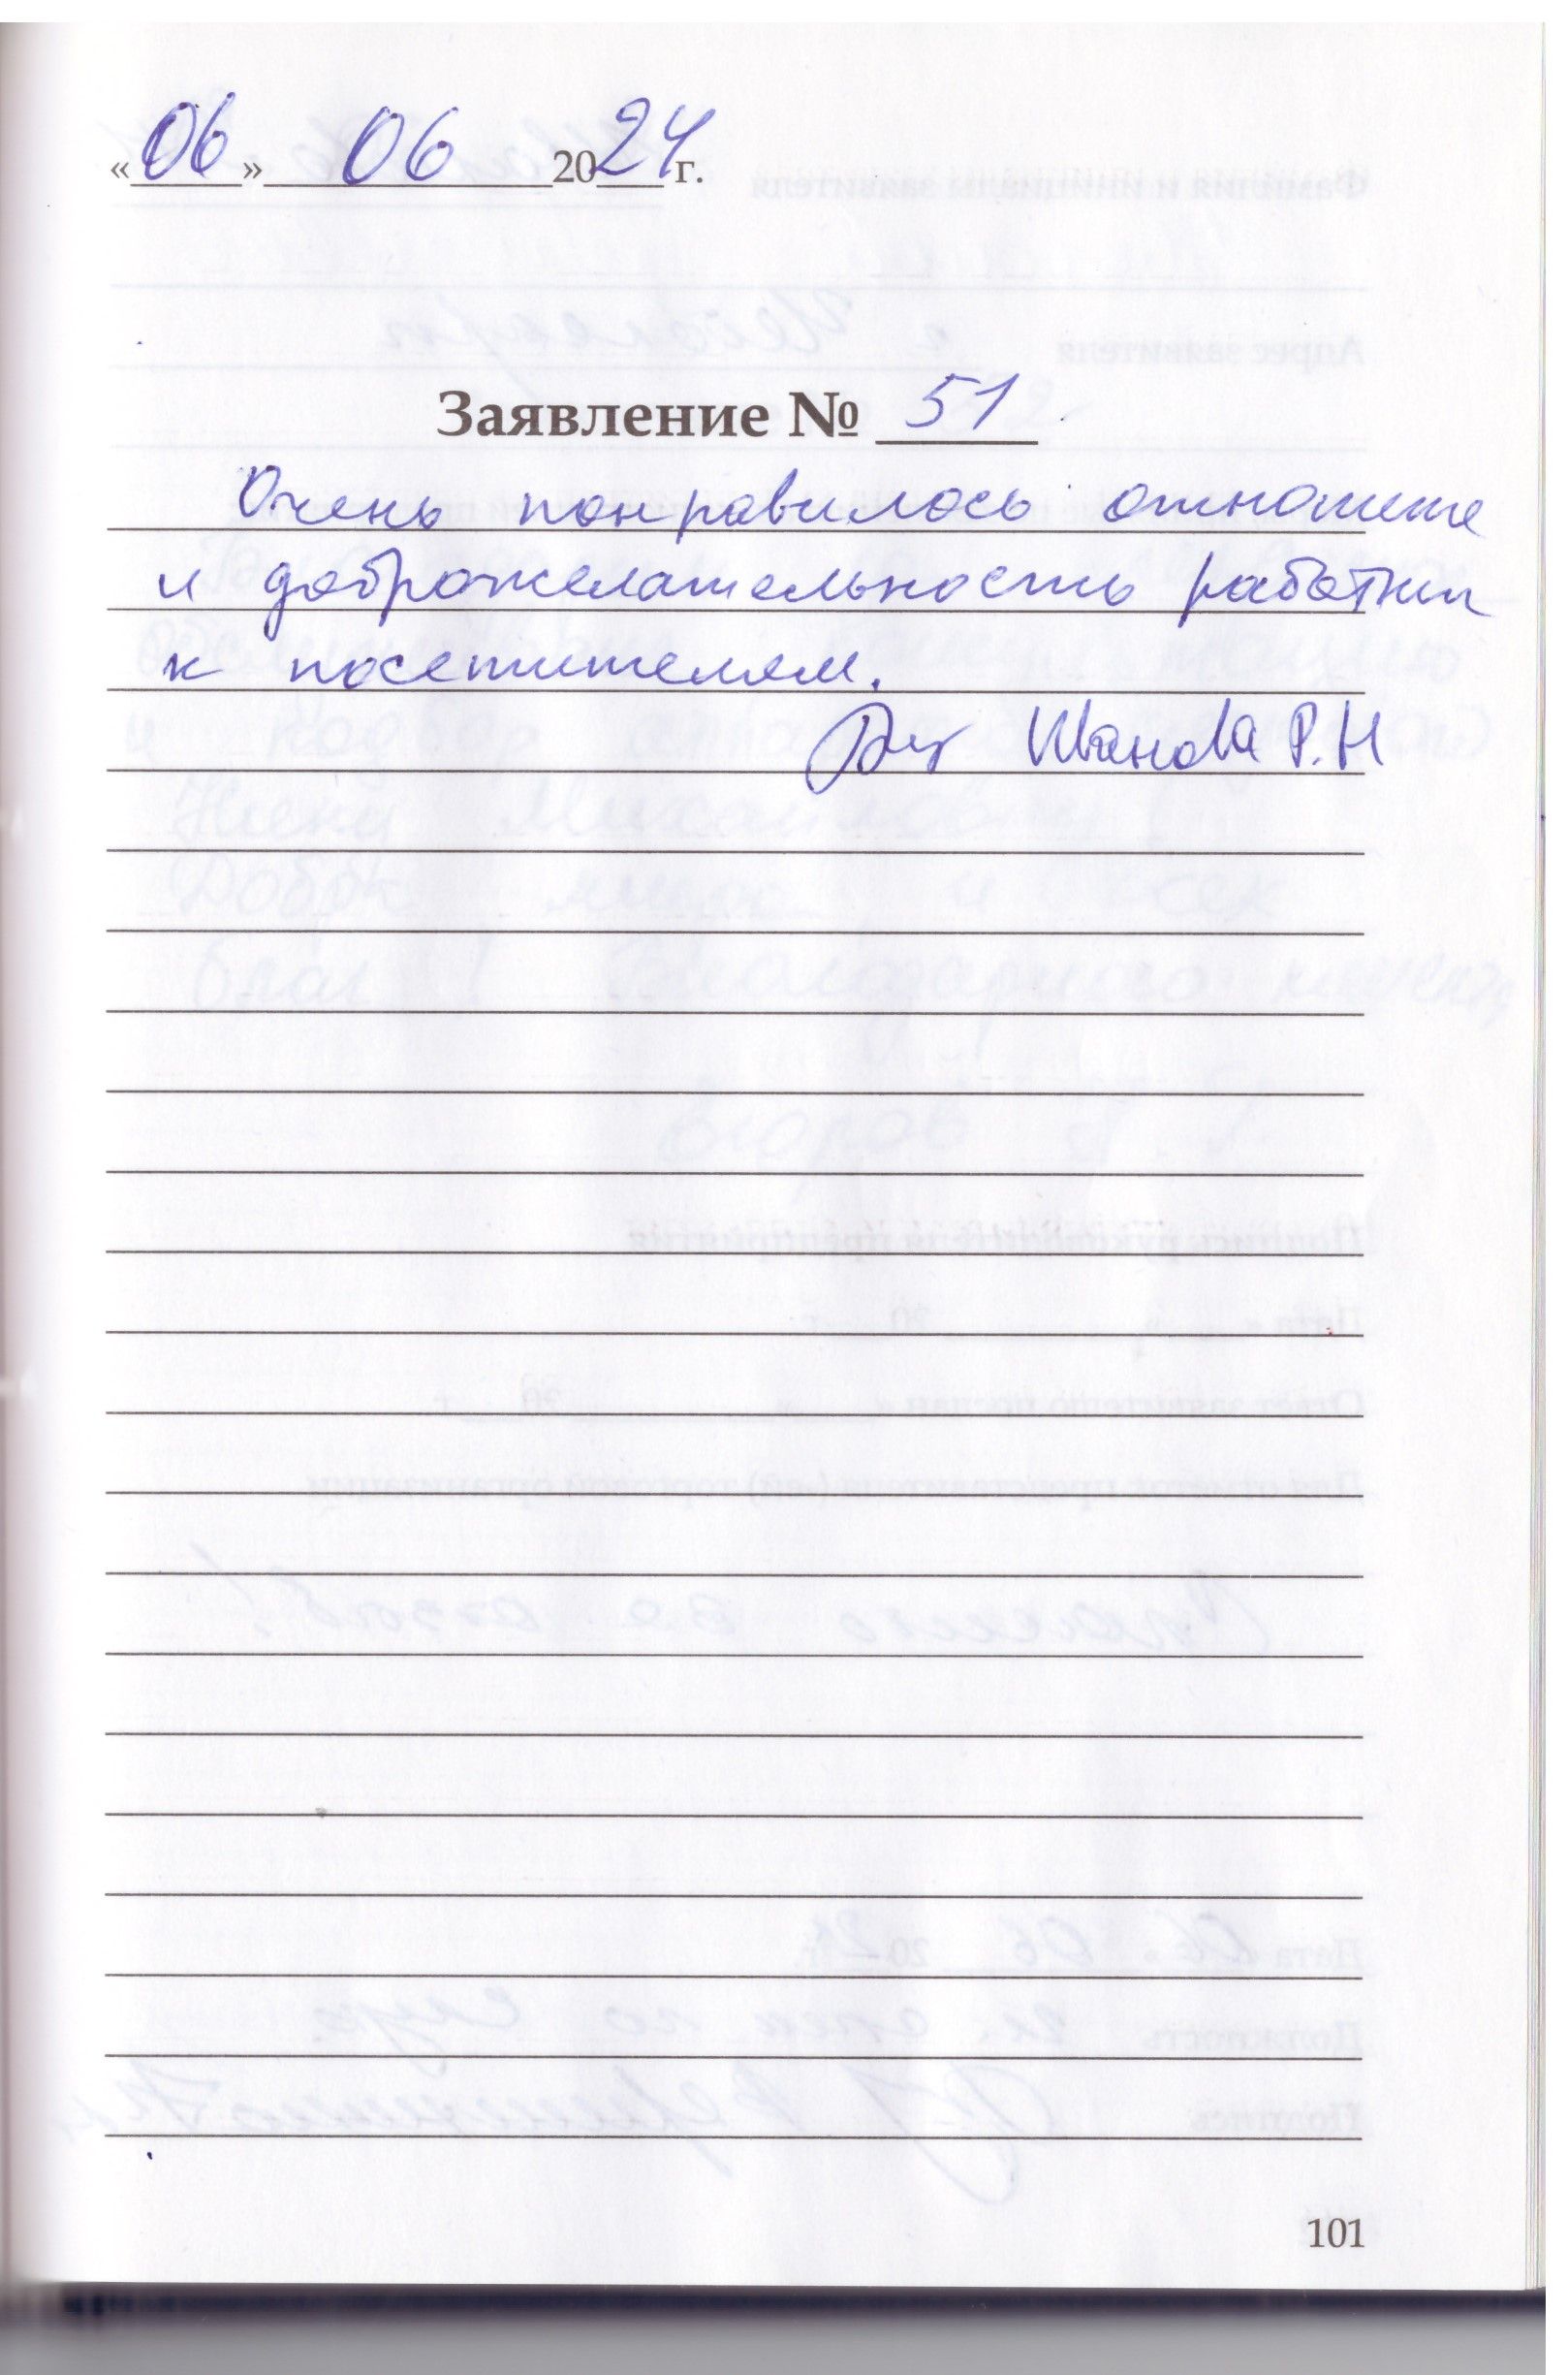 «06» 06 2024 г.
Заявление № 51
Очень понравилось отношение
и доброжелательность
к посетителям.
Иванова Р.Н
101